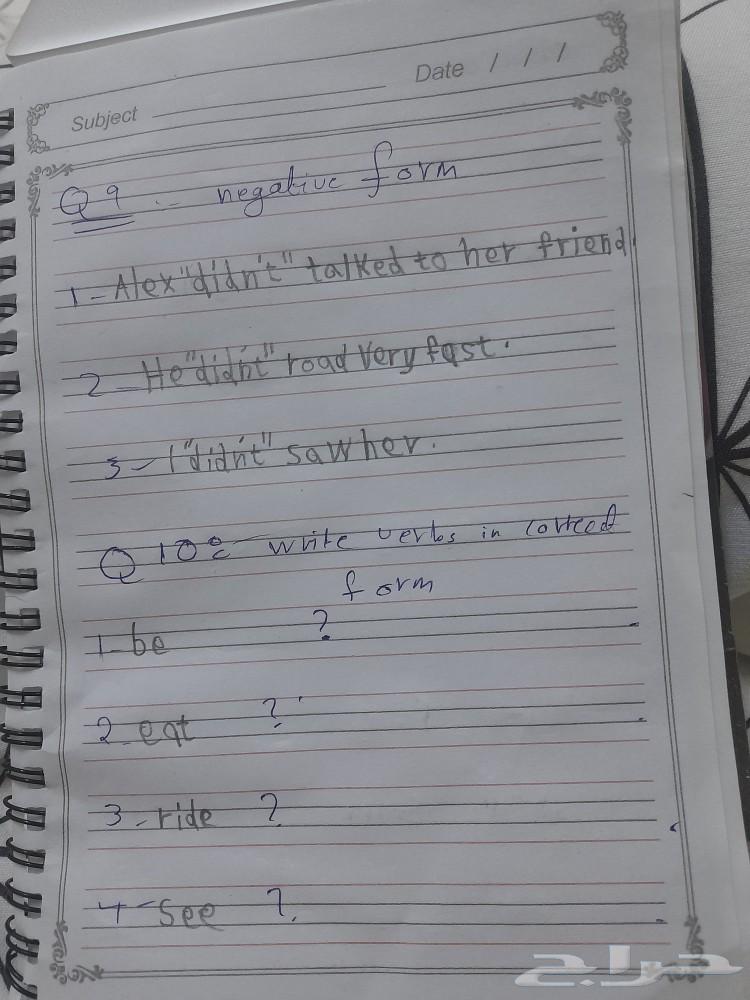 Subject
Date / / /
Q 9 :- negative form
1- Alex "didn't" talked to her friend
2- He "didn't" road very fast.
3- I "didn't" saw her.
Q 10:- write verbs in correct
form
1- be ?
2- eat ?
3- ride ?
4- See ?
حراج